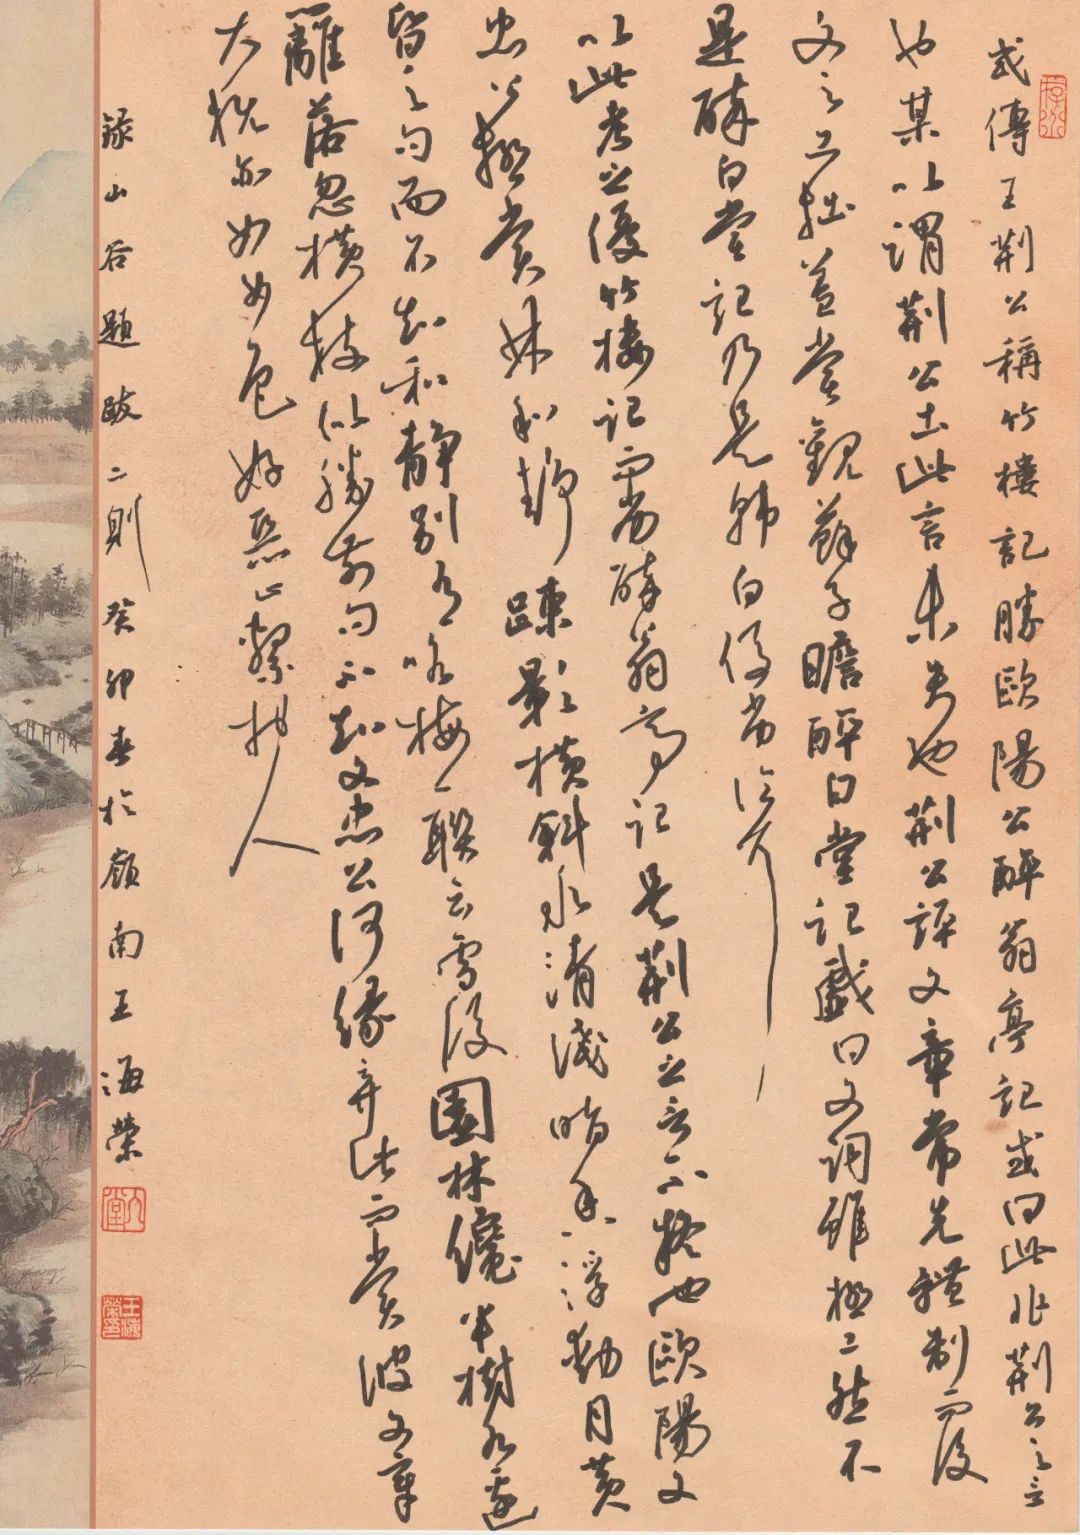 或傳王荆公稱竹樓記勝歐陽公醉翁亭記或曰此非荆公之言
也某以謂荆公出此言未失也荆公評文章常先體制而後
文之工拙蓋嘗觀蘇子瞻醉白堂記戲曰文詞雖極工然不
是醉白堂記乃是韓白優劣論耳
以此考之優竹樓記而劣醉翁亭記是荆公之言不疑也歐陽文
忠公極賞林和靜疎影橫斜水清淺暗香浮動月黃
昏之句而不知和靜別有咏梅一聯云雪後園林纔半樹水邊
籬落忽橫枝似勝前句不知文忠公何緣棄此而賞彼文章
大概亦如女色好惡止繫於人
錄山谷題跋二則癸卯春於嶺南王海榮
王海榮印